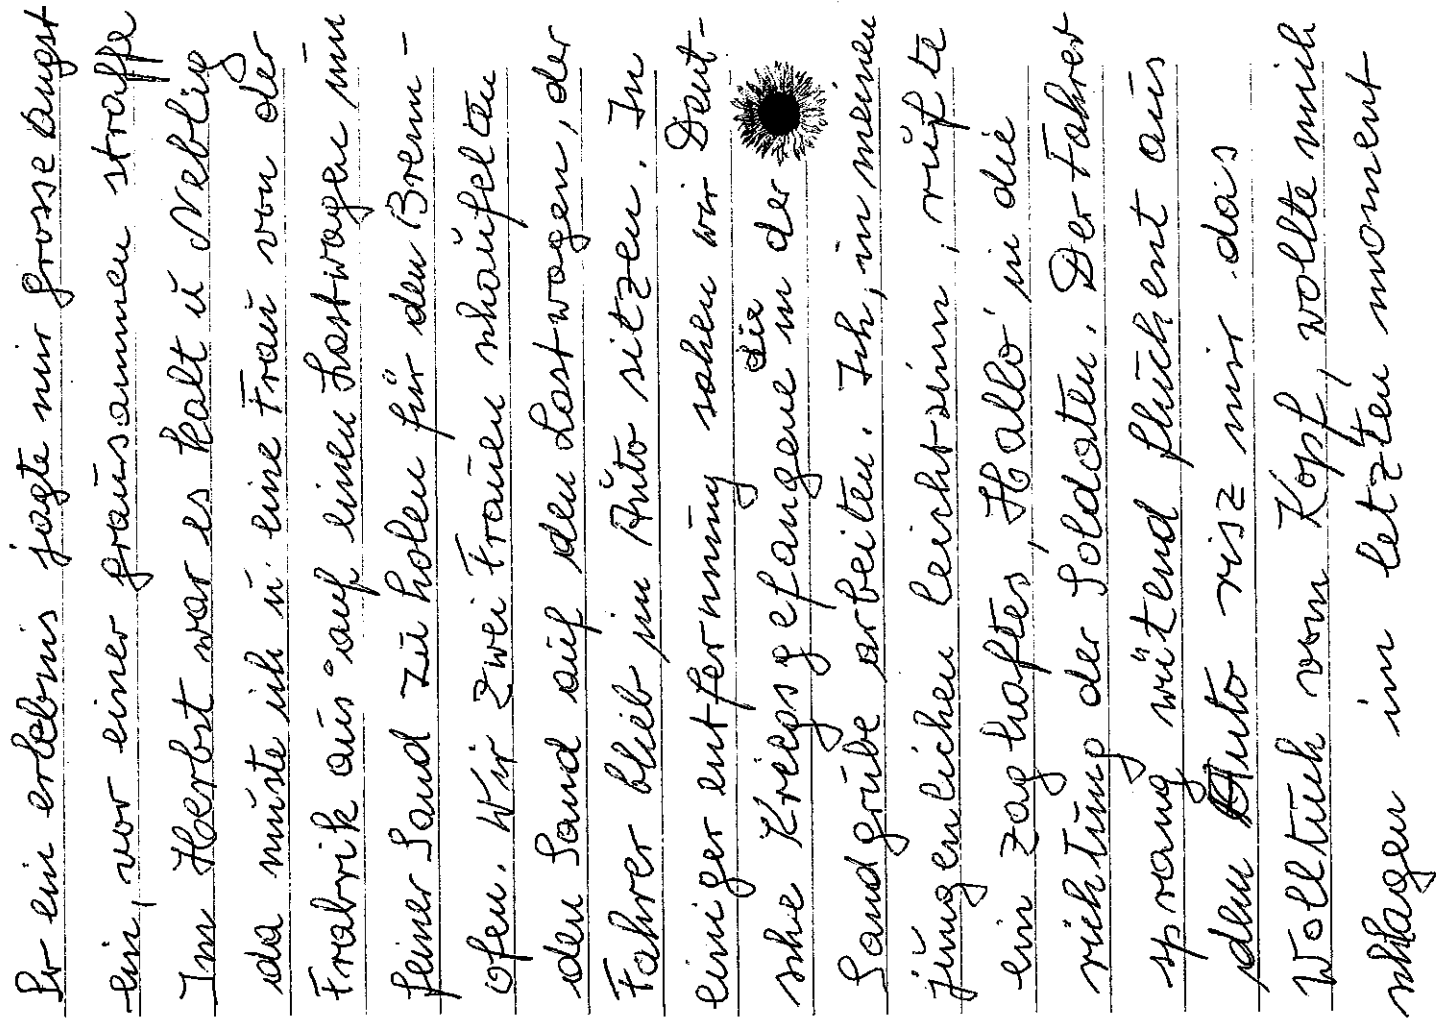 So ein erlebnis jagte mir grosse Angst
ein, vor einer grausamen straffe
Im Herbst war es kalt u Neblig
da muste ich u. eine Frau von der
Frabrik aus auf einen Lastwagen im
feiner Sand zu holen für den Bren-
ofen. Wir zwei Frauen schaufelten
den Sand auf den Lastwagen, der
Fahrer blieb im Auto sitzen. In
einiger entfernung sahen wir Deut-
sche Kriegsgefangene die in der
Sandgrube arbeiten. Ich, in meinen
jungenlichen leichtsinn, rufte
ein zaghaftes, Hallo' in die
richtung der Soldaten. Der Fahrer
sprang wütend fluchent aus
den Auto risz mir das
Wolltuch vom Kopf, wollte mich
schlagen im letzten moment